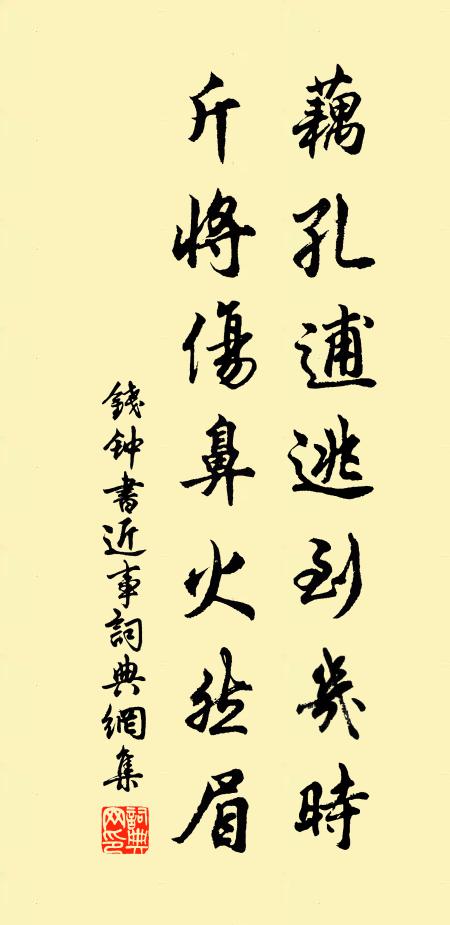 藕孔逋逃到幾時
斤將傷鼻火然眉
錢钟書近事詞典網集
詞典網印